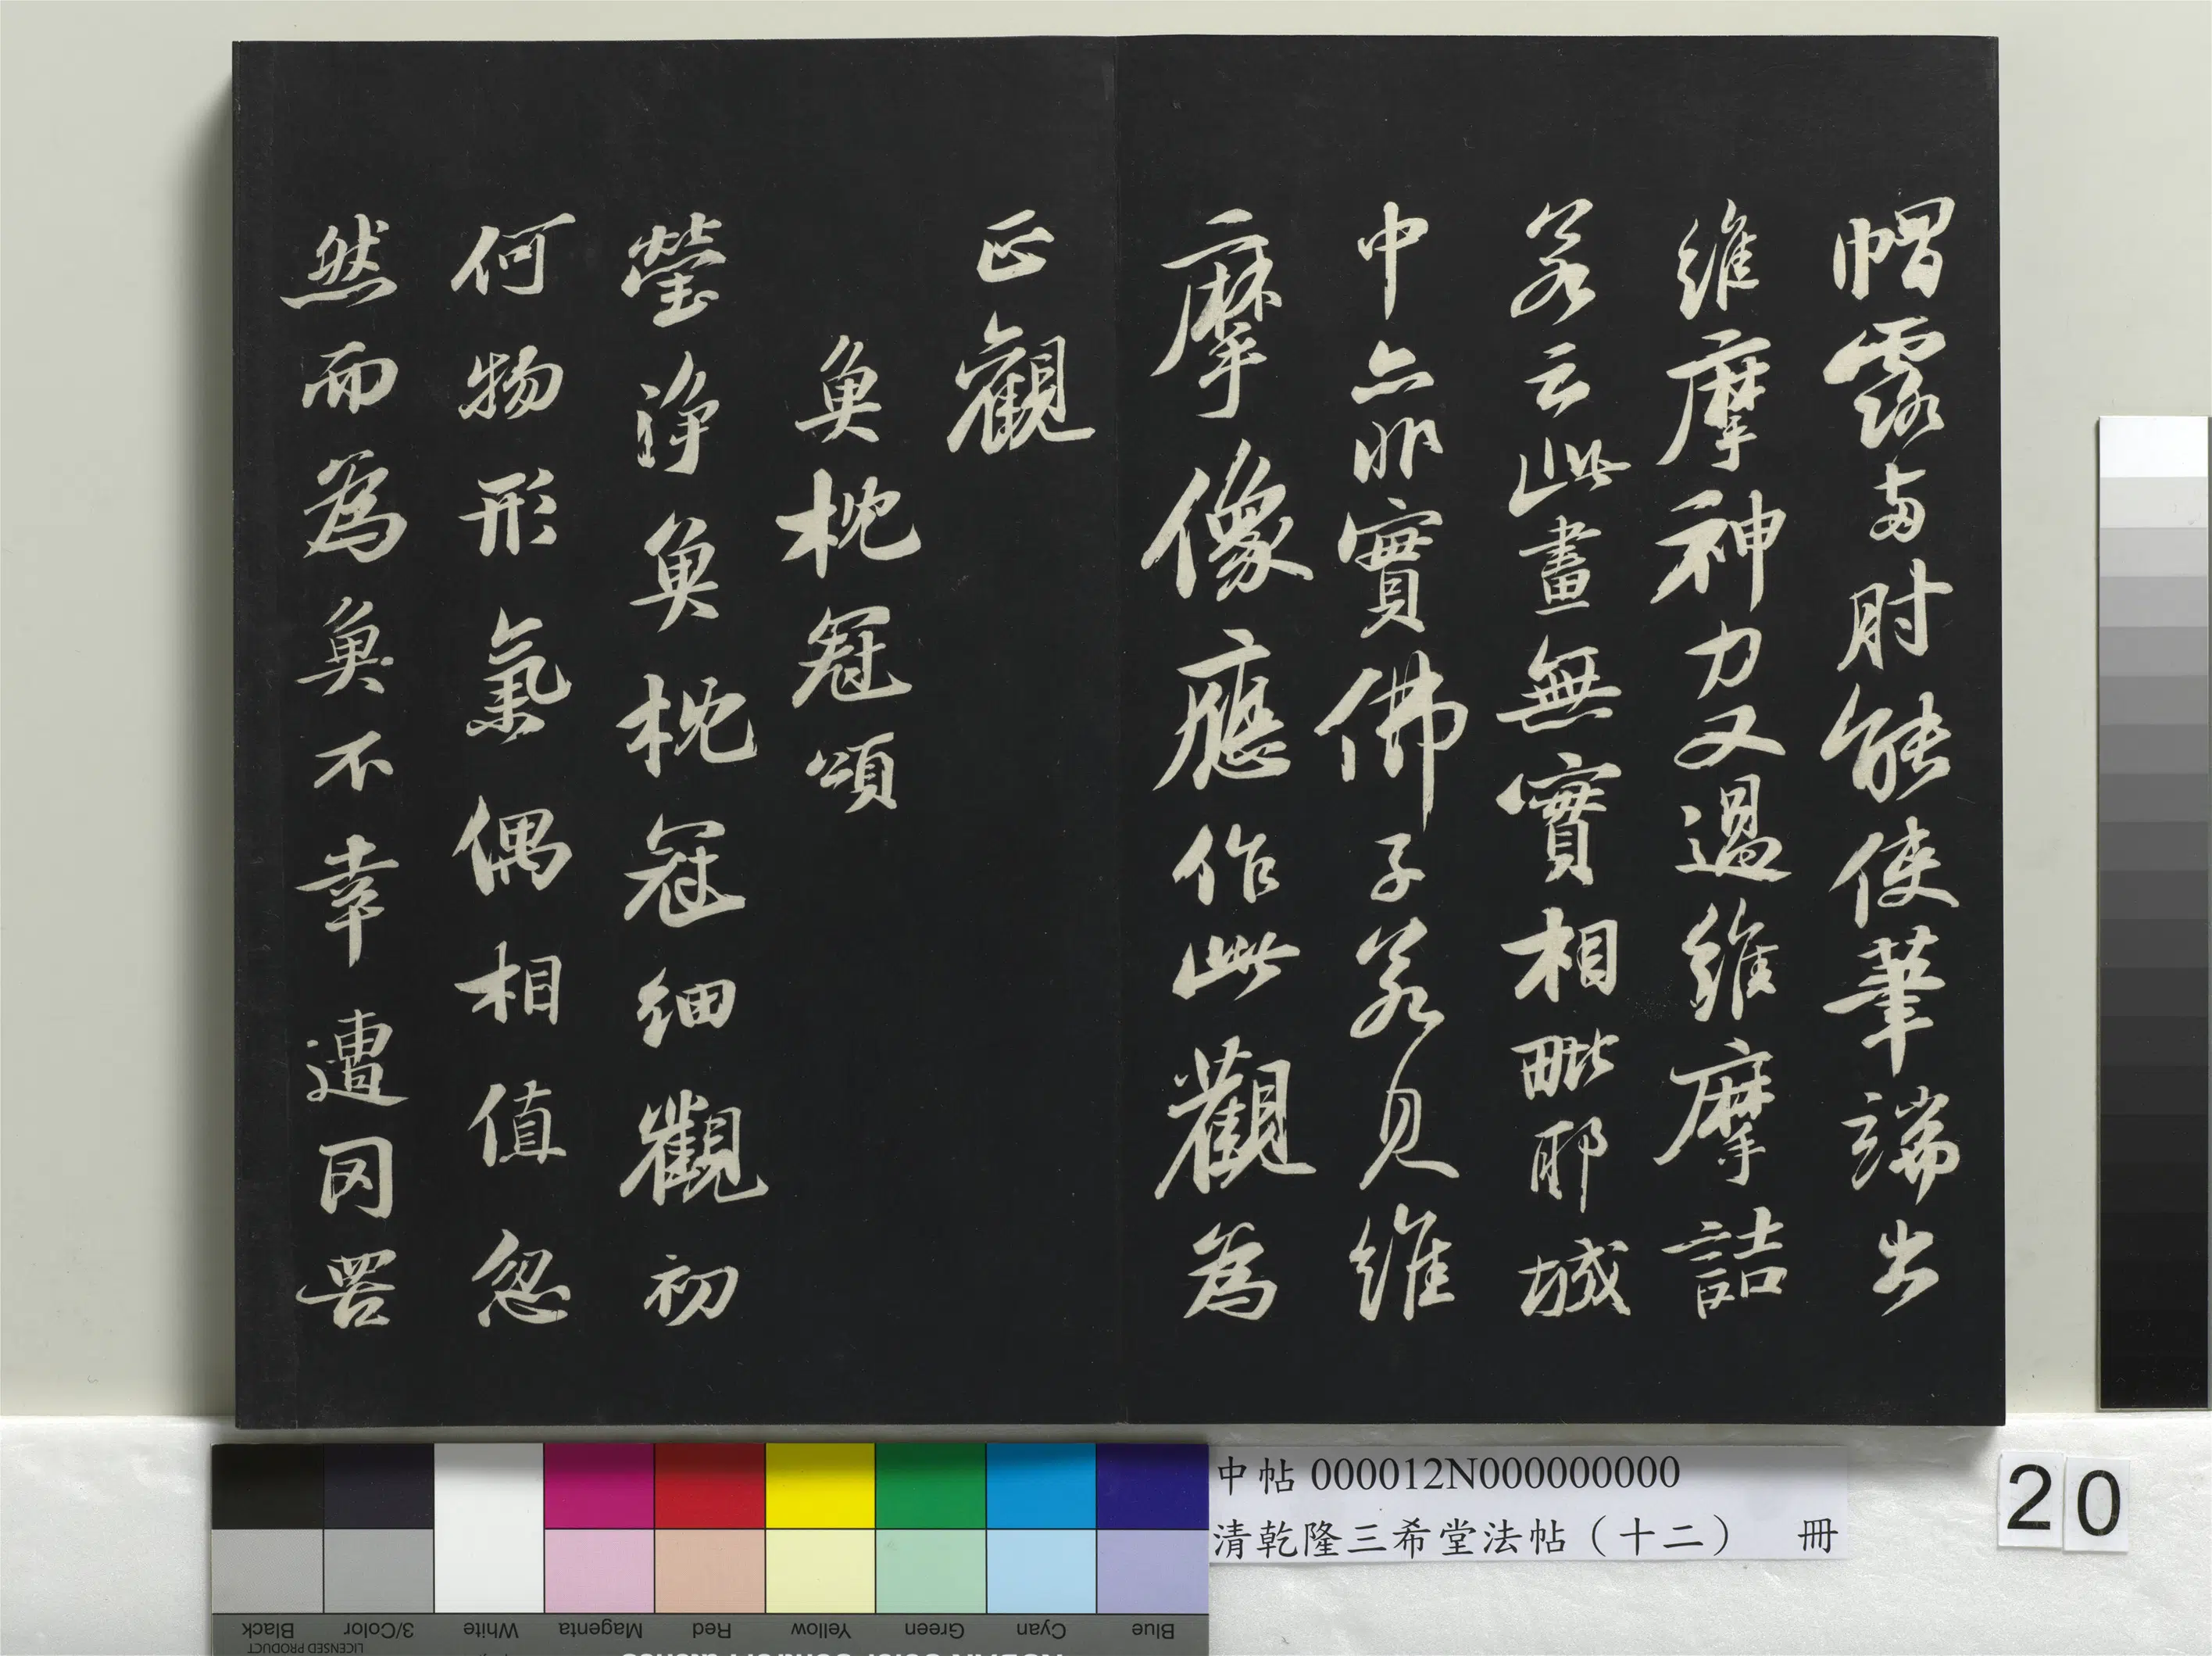 帽露兩肘能使筆端出
維摩神力又過維摩詰
若云此畫無實相毗耶城
中亦非實佛子若見維
摩像應作此觀為
正觀
魚枕冠頌
瑩淨魚枕冠細觀初
何物形氣偶相值忽
然而為魚不幸遭罔罟
中帖 000012N000000000
清乾隆三希堂法帖（十二） 冊
20
Blue Cyan Green Yellow Red Magenta White 3/Color Black
LICENSED PRODUCT